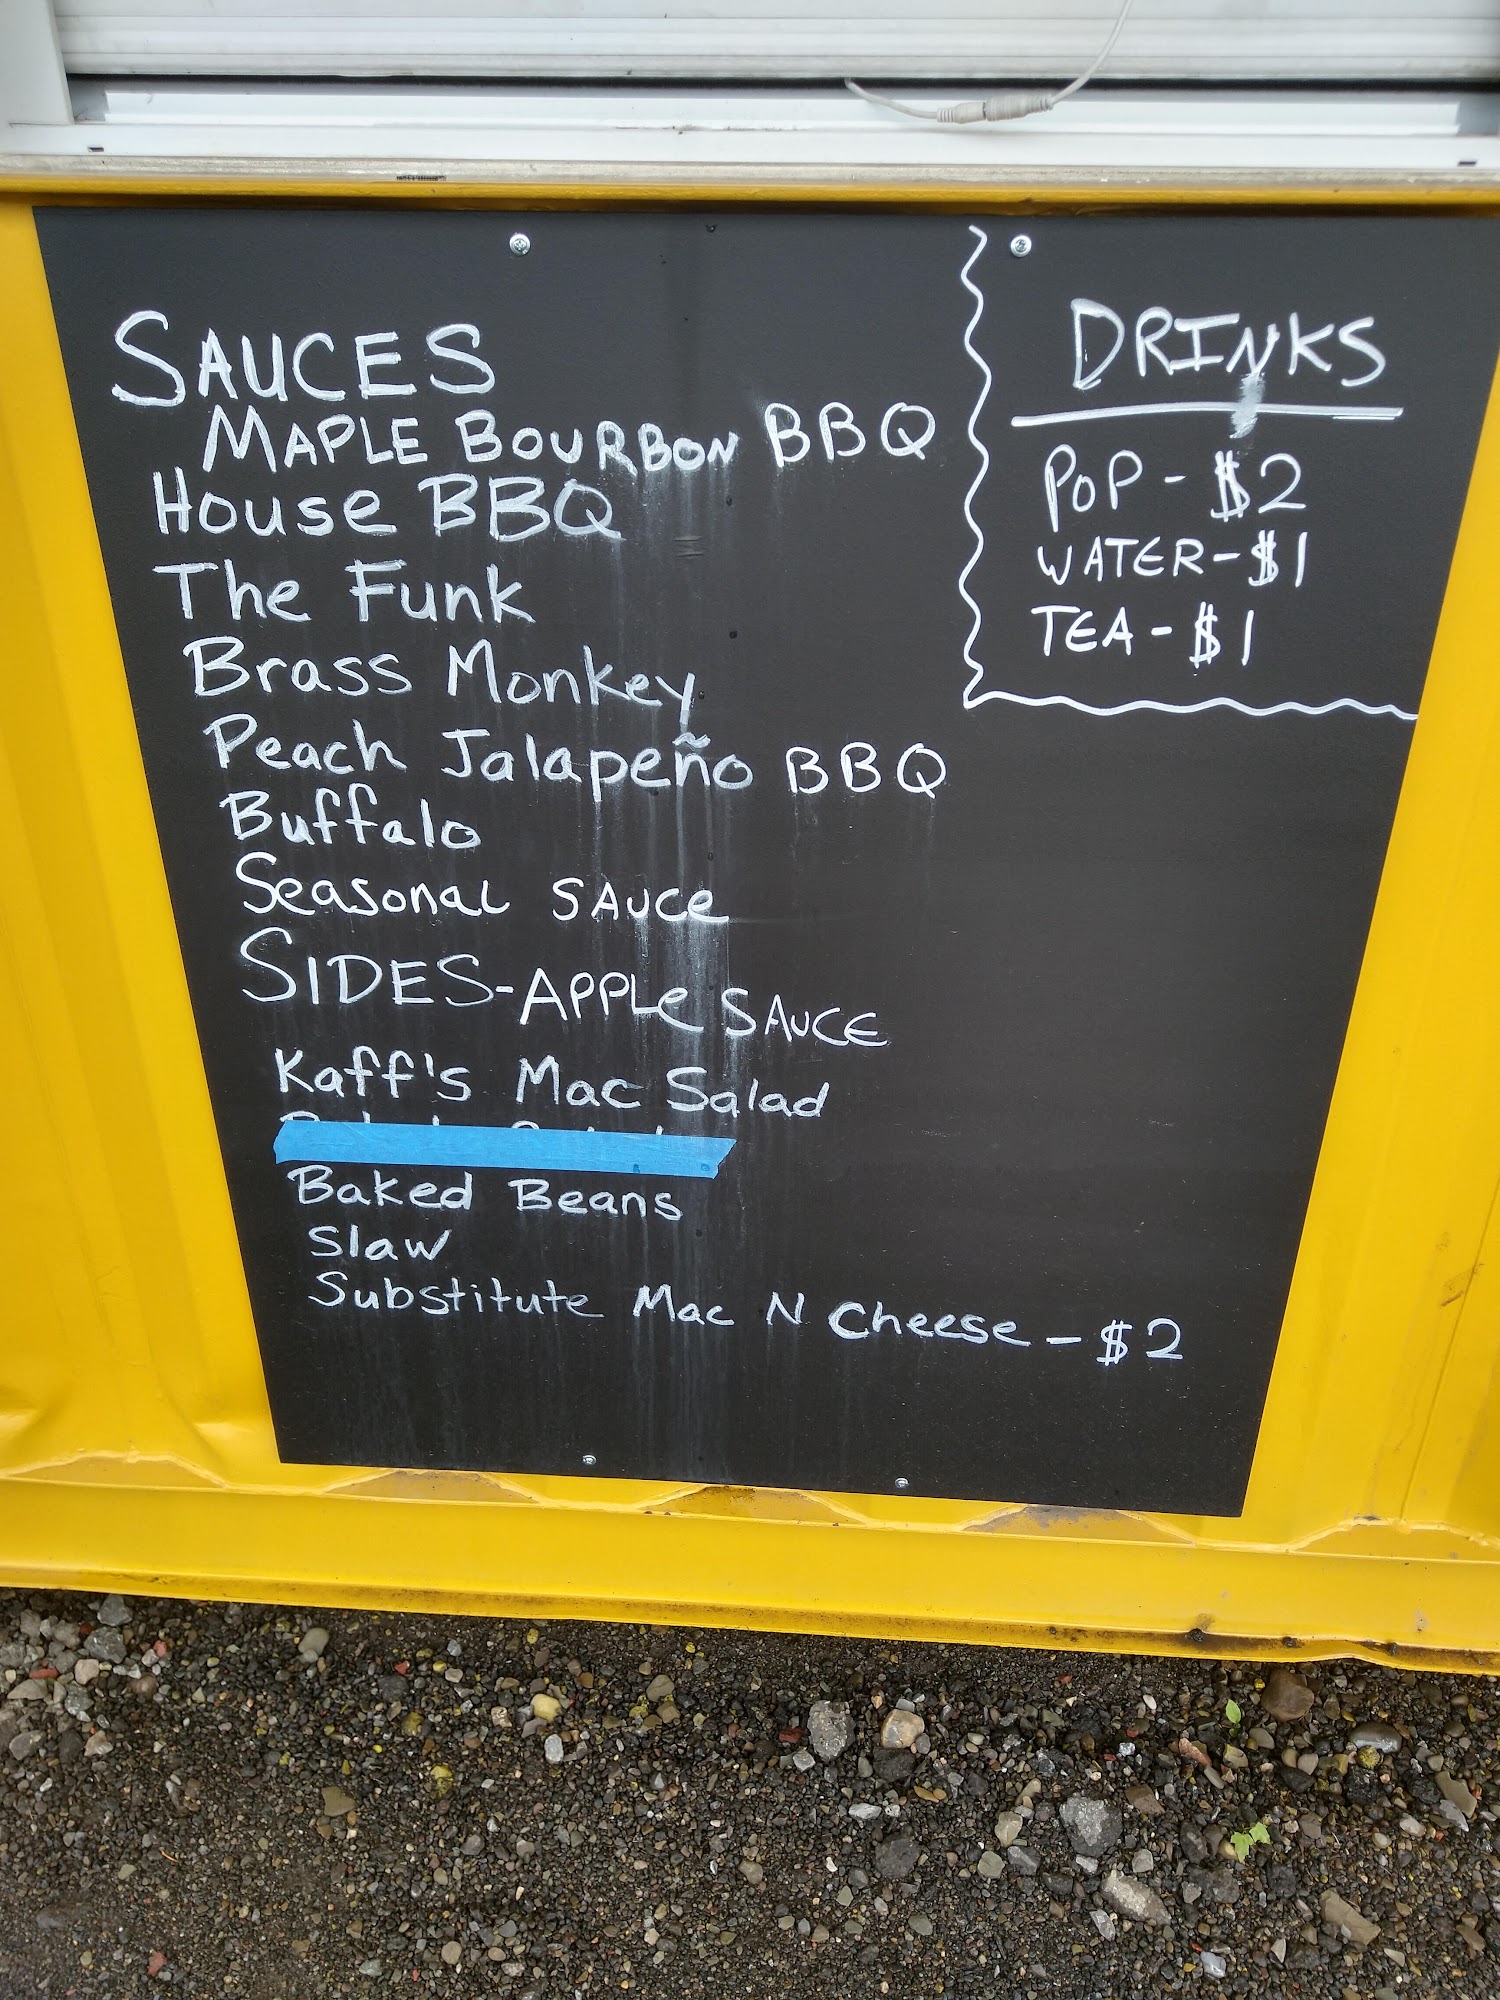 SAUCES
MAPLE BOURBON BBQ
House BBQ
The Funk
Brass Monkey
Peach Jalapeño BBQ
Buffalo
Seasonal SAUCe
SIDES-APPLe SAUCE
Kaff's Mac Salad
Baked Beans
Slaw
Substitute Mac N Cheese - $2
DRINKS
POP - $2
WATER - $1
TEA - $1